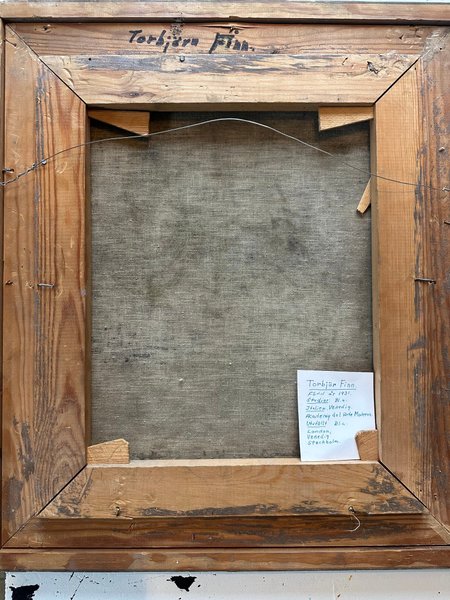 Torbjörn Finn.
Torbjörn Finn.
Född År 1931.
Studier: Bl.a.
Italien Venedig
Academy del Arte Moderna.
Utställt Bl.a.
London,
Venedig
Stockholm.